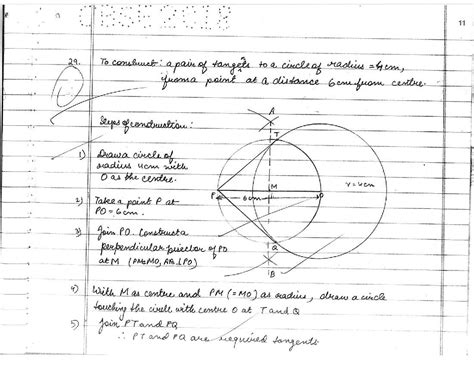 CBSE 2018
11
29. To construct: a pair of tangents to a circle of radius = 4cm,
from a point at a distance 6cm from centre.
Steps of construction:
1) Draw a circle of
radius 4cm with
O as the centre.
2) Take a point P at
PO = 6cm.
3) Join PO. Construct a
perpendicular bisector of PO
at M (PM=MO, AB⊥PO)
4) With M as centre and PM (=MO) as radius, draw a circle
touching the circle with centre O at T and Q
5) Join PT and PQ
∴ PT and PQ are required tangents
A
T
P
M
6cm
O
r=4cm
Q
B